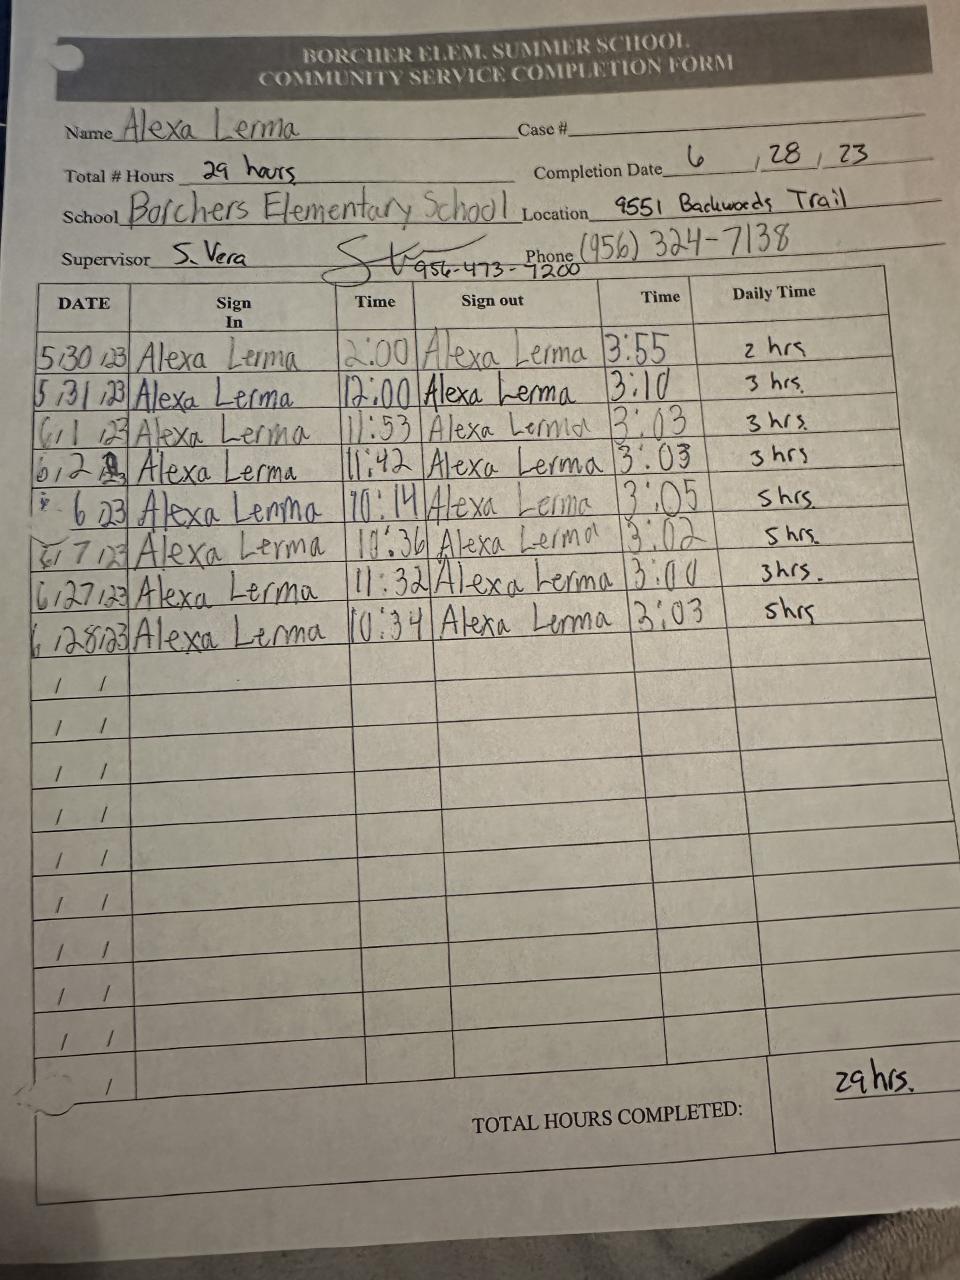 BORCHER ELEM. SUMMER SCHOOL
COMMUNITY SERVICE COMPLETION FORM
Name Alexa Lerma Case #
Total # Hours 29 hours Completion Date 6 / 28 / 23
School Borchers Elementary School Location 9551 Backwoods Trail
Supervisor S. Vera Phone (956) 324-7138
956-473-7200
DATE Sign In Time Sign out Time Daily Time
5/30/23 Alexa Lerma 2:00 Alexa Lerma 3:55 2 hrs
5/31/23 Alexa Lerma 12:00 Alexa Lerma 3:10 3 hrs.
6/1/23 Alexa Lerma 11:53 Alexa Lerma 3:03 3 hrs.
6/2/23 Alexa Lerma 11:42 Alexa Lerma 3:03 3 hrs
6 23 Alexa Lerma 10:14 Alexa Lerma 3:05 5 hrs.
6/7/23 Alexa Lerma 10:36 Alexa Lerma 3:02 5 hrs.
6/27/23 Alexa Lerma 11:32 Alexa Lerma 3:00 3 hrs.
/28/23 Alexa Lerma 10:34 Alexa Lerma 3:03 5 hrs
/ /
/ /
/ /
/ /
/ /
/ /
/ /
/ /
/ /
/
TOTAL HOURS COMPLETED: 29 hrs.